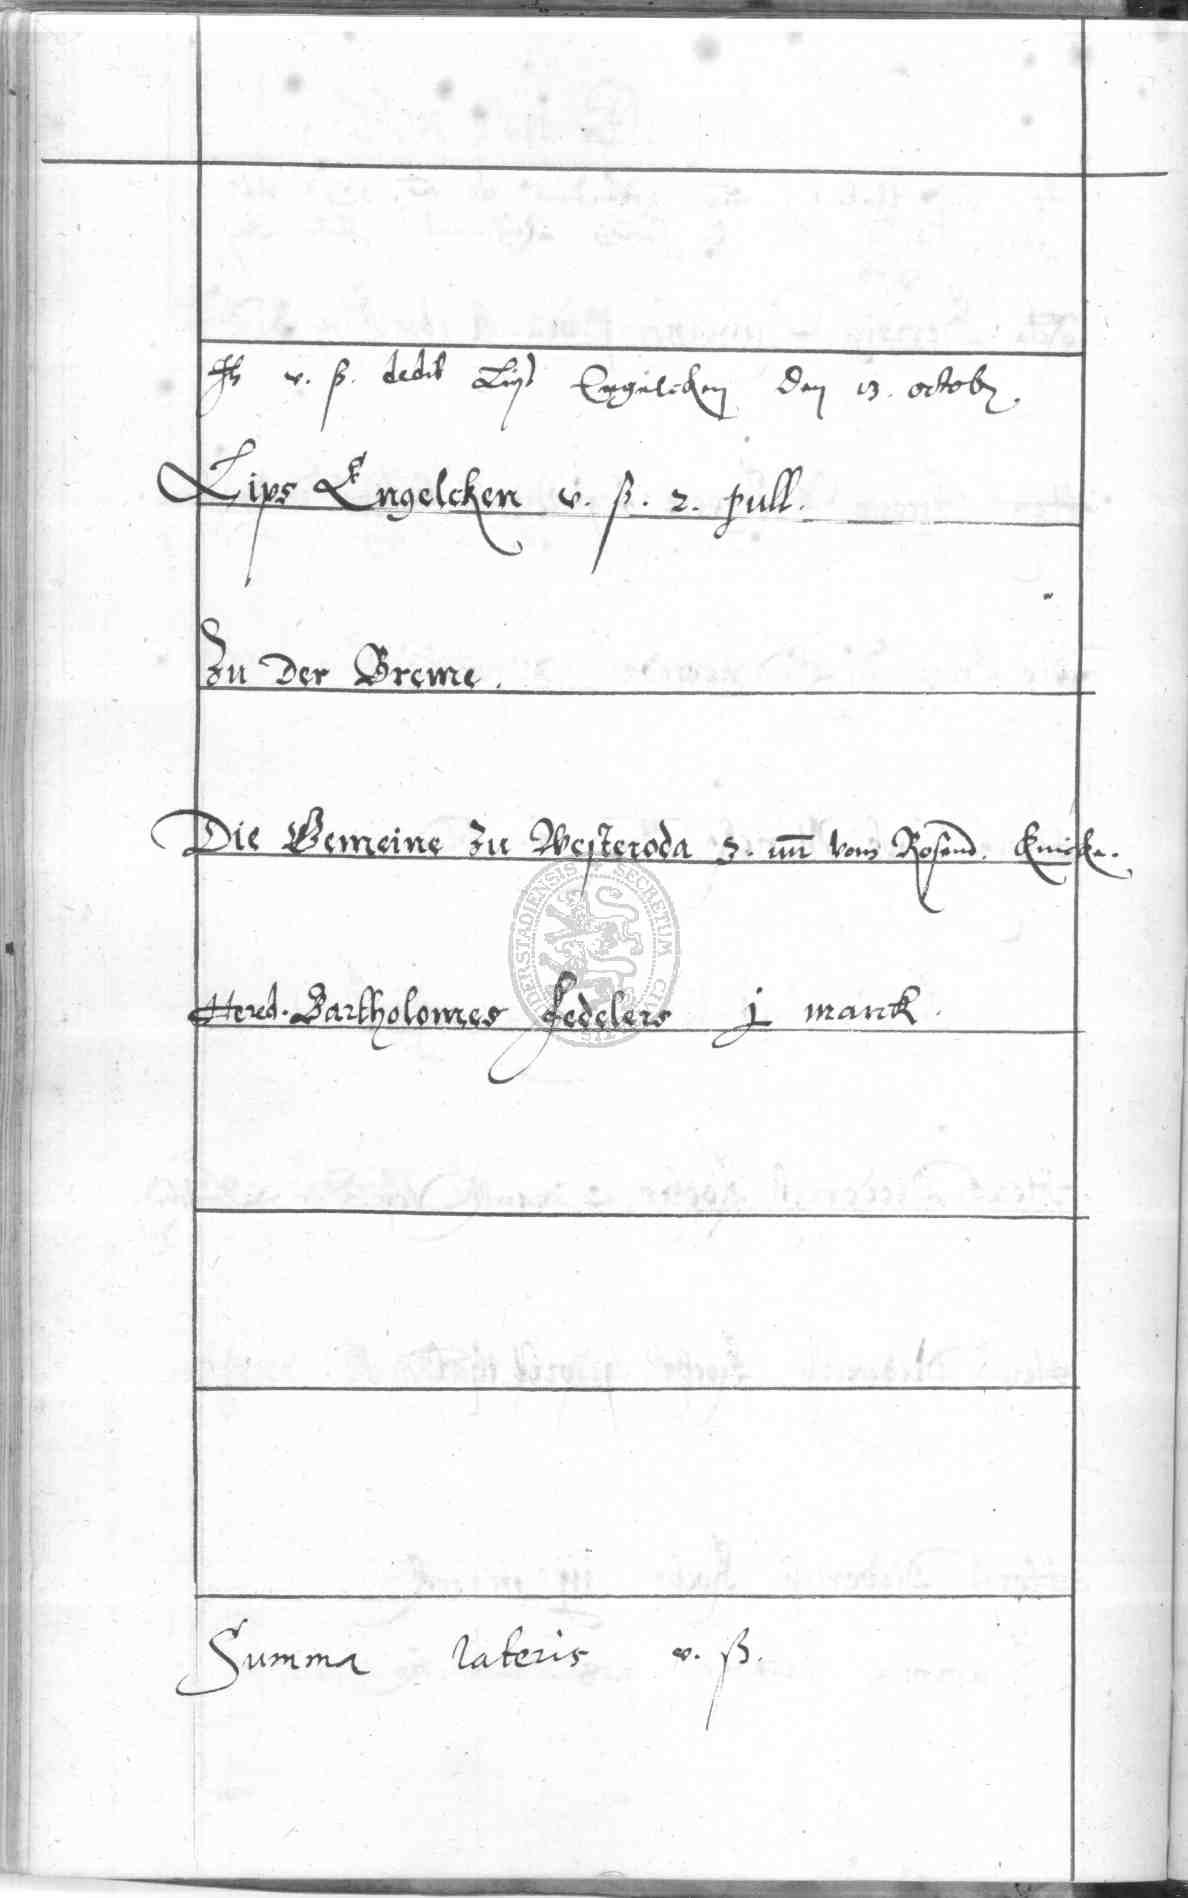 v. ß. dedit Lips Engelcken den 13. octob.
Lips Engelcken v. ß. 2. pull.
Zu der Breme.
Die Gemeine zu Westeroda 3. m vom Rosend. Knicke.
Hered. Bartholomes Fedelers j marck.
DERSTADIENSIS SECRETUM CIVI
Summa lateris v. ß.